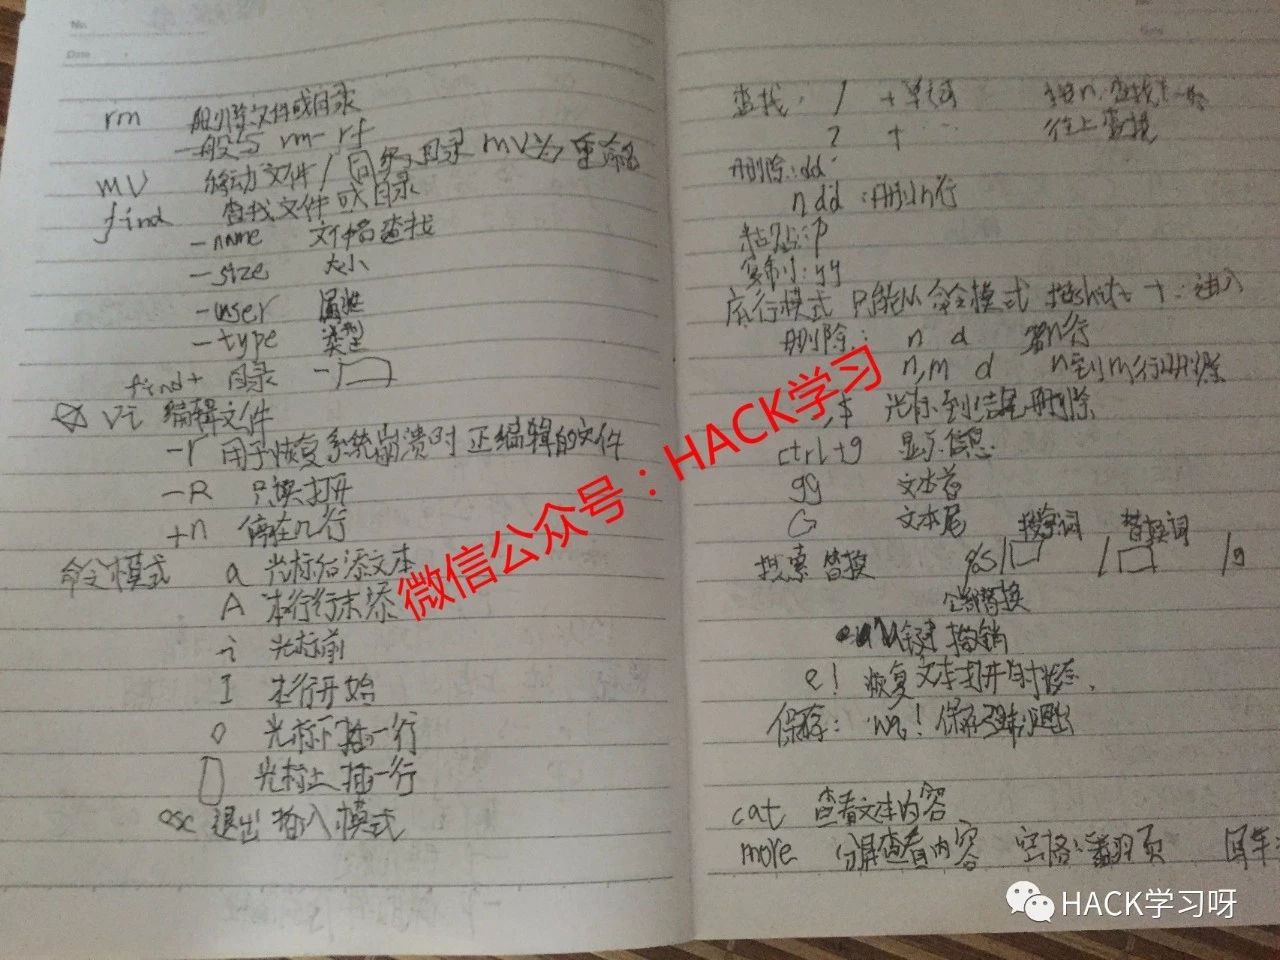 No.
Date
rm 删除文件或目录
一般与 rm-rf
mv 移动文件/同级目录 mv为重命名
find 查找文件或目录
-name 文件名查找
-size 大小
-user 属主
-type 类型
find+ 目录 -
vi 编辑文件
-r 用于恢复系统崩溃时正编辑的文件
-R 只读打开
+n 停在几行
命令模式 a 光标后添文本
A 本行行末添
i 光标前
I 本行开始
o 光标下插一行
O 光标上插一行
esc 退出插入模式
查找: / +单词 按n,查找下一个
? + 往上查找
删除:dd
ndd:删n行
粘贴:p
复制:yy
底行模式 只能从命令模式 按shift+:进入
删除: n d 第n行
n,m d n到m行删除
,$ 光标到结尾删除
ctrl+g 显示信息
gg 文本首
G 文本尾
搜索词 替换词
搜索替换 %s/ / /g
全部替换
u键撤销
e! 恢复文本打开时状态.
保存: wq! 保存强制退出
cat 查看文本内容
more 分屏查看内容 空格:翻页 回车
微信公众号：HACK学习
HACK学习呀